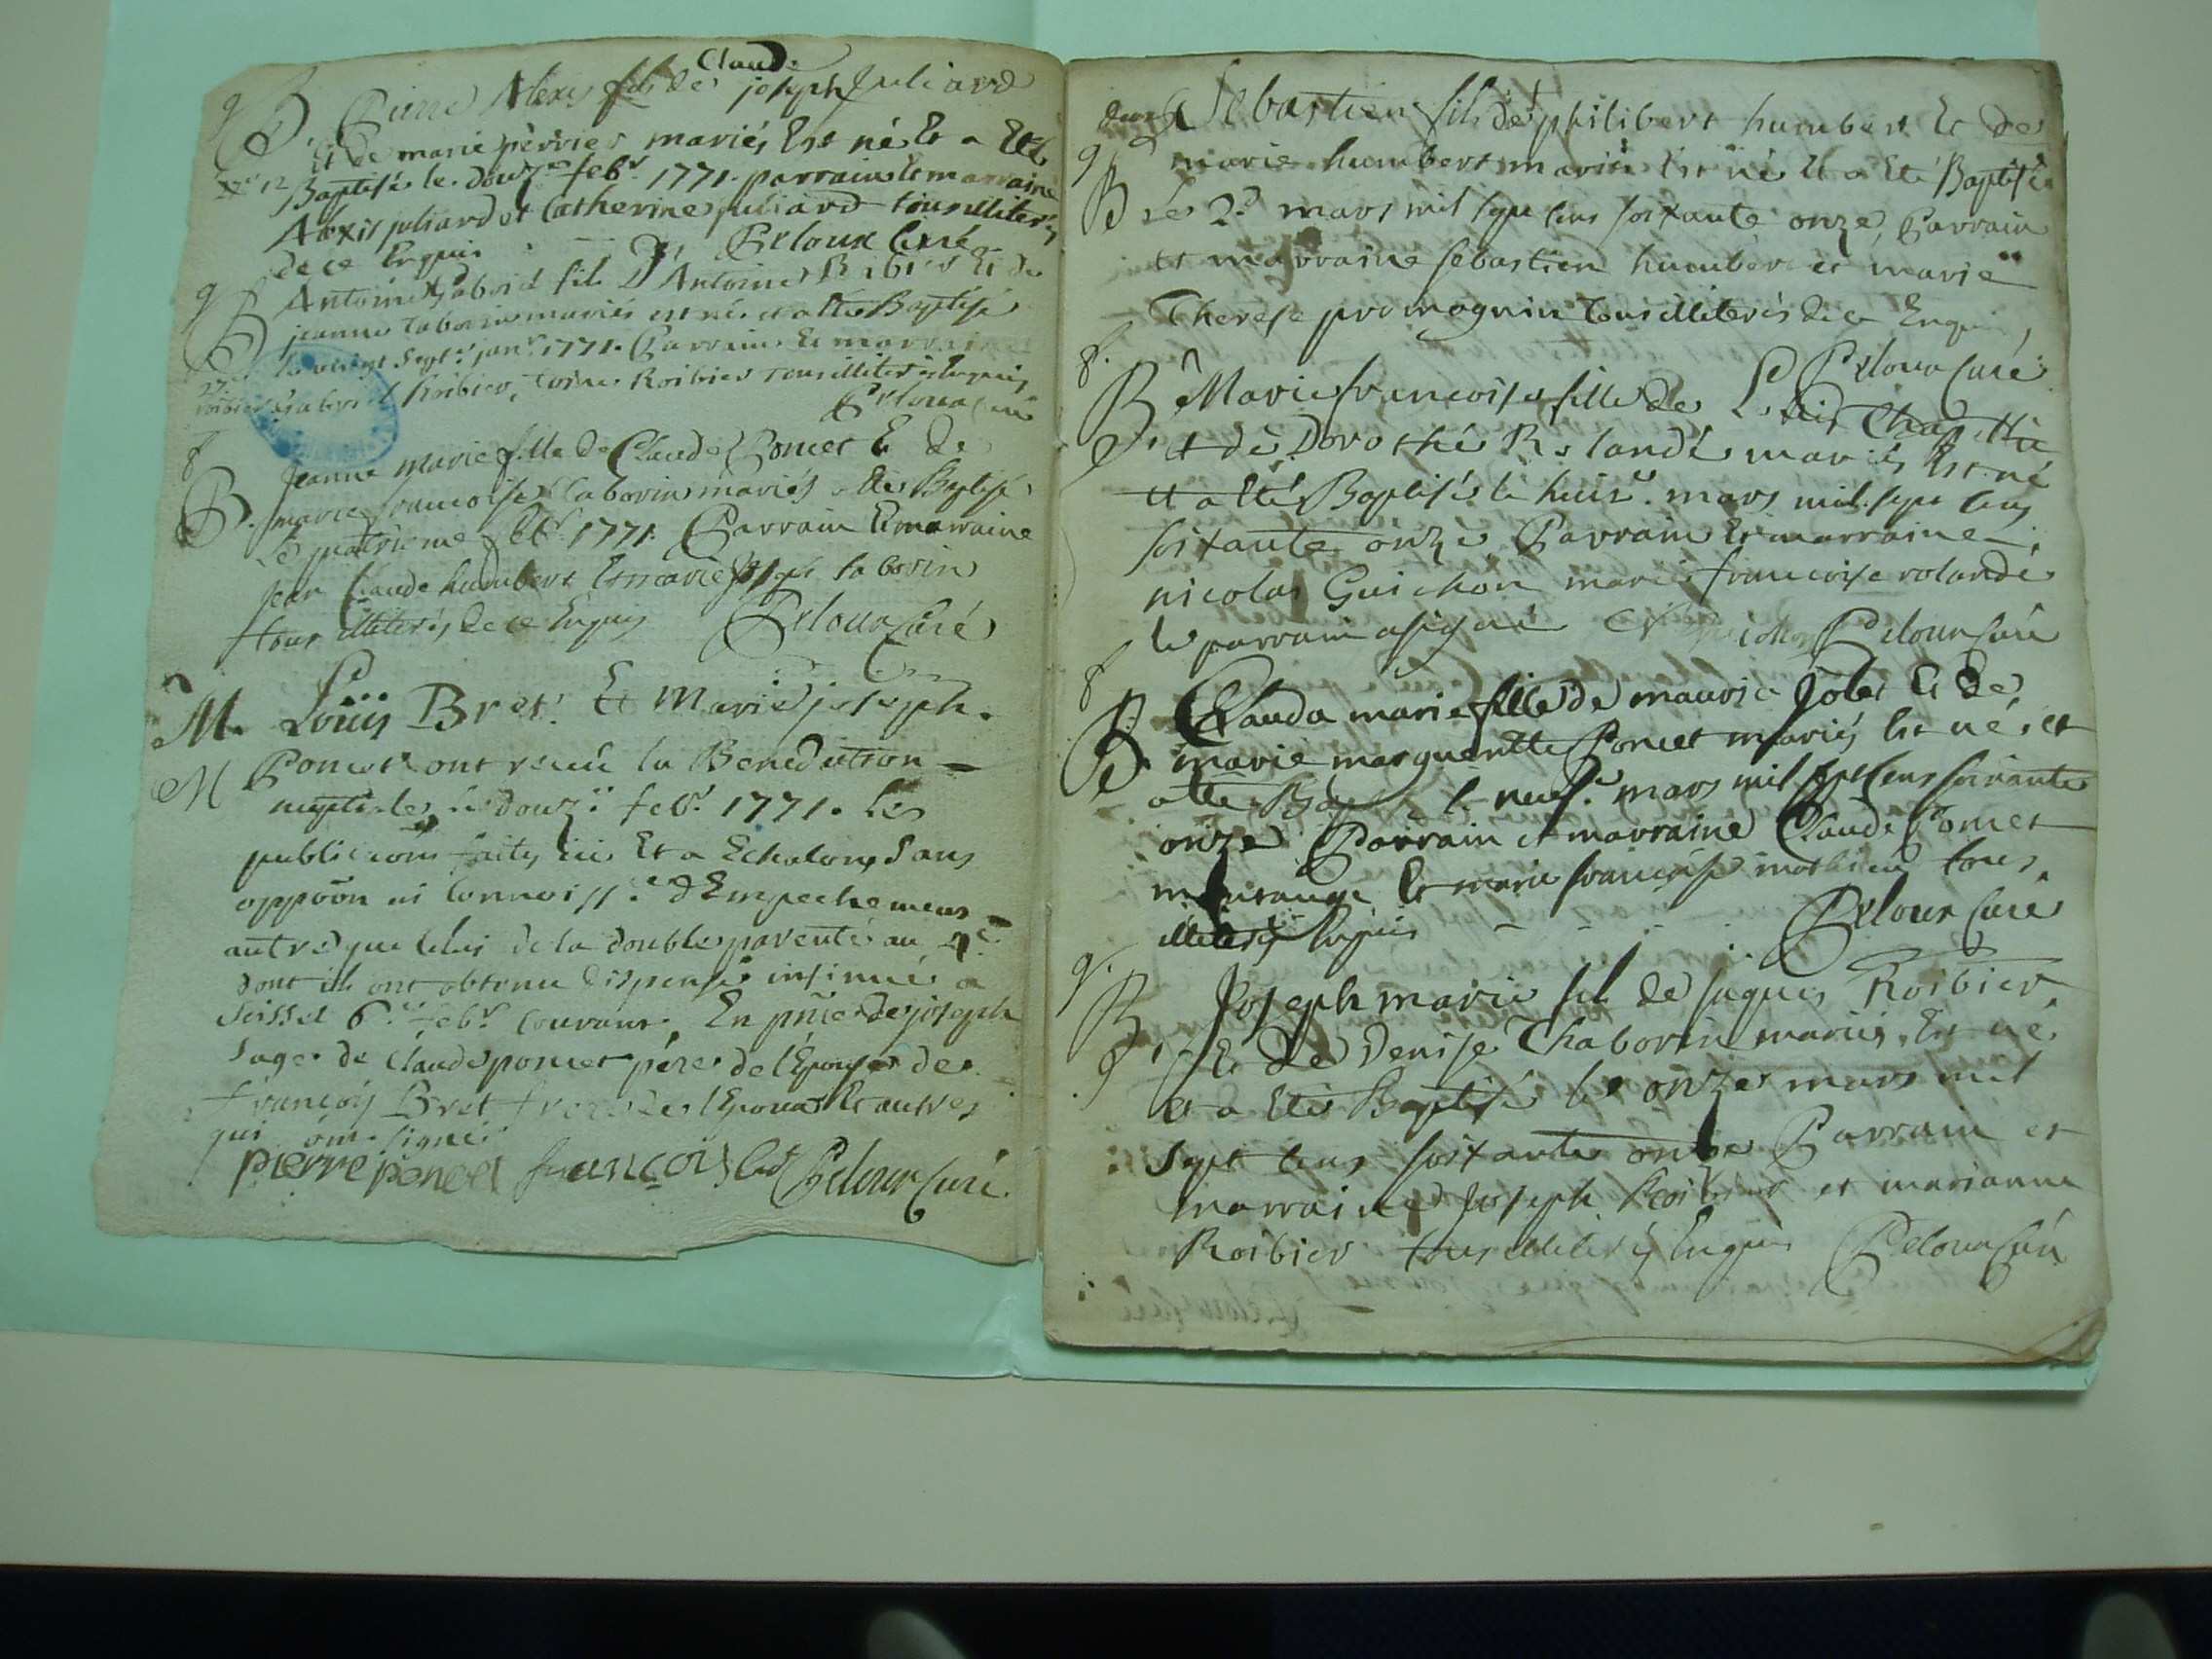 Claude
g B. Pierre Alexis fils de joseph Juliard
Et de marie perrier mariés Est né Et a Eté
12 Baptisé le douze febr. 1771. parrain Et marraine
Alexis juliard et Catherine juliard tous illiterés
de ce Enquis Peloux Curé
g B Antoine Gabriel fils D'Antoine Et de
jeanne taborin mariés est né et a eté Baptisé
27 le vingt Sept. janr. 1771. Parrain Et marraine
Gabriel Roibier, Roibier tous illiterés Enquis
Peloux Curé
f Jeanne marie fille de Claude Poncet Et de
B. marie francoise taborin mariés a eté Baptisé
Le quatrieme febr. 1771. Parrain Et marraine
Jean Claude humbert Et marie joseph taborin
tous illiterés de ce Enquis Peloux Curé
M. Loüis Bret. Et Marie joseph.
M Poncet ont receu la Benediction
nuptiale le douze febr. 1771. les
publications faites ici Et a Echalon, Sans
oppoôn ni connoiss.ce d'Empechemens
autre que celui de la double parenté au 4e
dont ils ont obtenu dispense insinuée a
Seissel 6e febr. courant. En pñce de joseph
Sage. de Claude poncet pére de l'Epouse de
françois Bret frere de l'Epoux Et autres
qui ont signés
pierre poncet françois bret Peloux Curé
Sebastien fils de philibert humbert Et de
g marie humbert mariés Est né Et a Eté Baptisé
B Le 2e mars mil sept cens soixante onze, Parrain
et marraine sebastien humbert et marie
Therese promognin tous illiterés de ce Enquis,
Peloux Curé
f. B Marie francoise fille de Loüis Chapelle
Et de Dorothé Rolande mariés Est né
et a eté Baptisé le huit. mars mil sept cens
soixante onze Parrain Et marraine
nicolas Guichon marie francoise rolande
le parrain a signé Peloux Curé
f B Clauda marie fille de maurice Jolet Et de
marie margueritte Poncet mariés Est né et
a eté Bapt. le neuf. mars mil sept cens soixante
onze Parrain et marraine Claude Poncet
Et marie francoise mathieu tous
illiterés Enquis Peloux Curé
g. B Joseph marie fils de Jaques Roibier
Et De Denise Thaborin mariés Est né
et a eté Baptisé le onze mars mil
sept cens soixante onze Parrain et
marraine Joseph Roibier et marianne
Roibier tous illiterés Enquis Peloux Curé